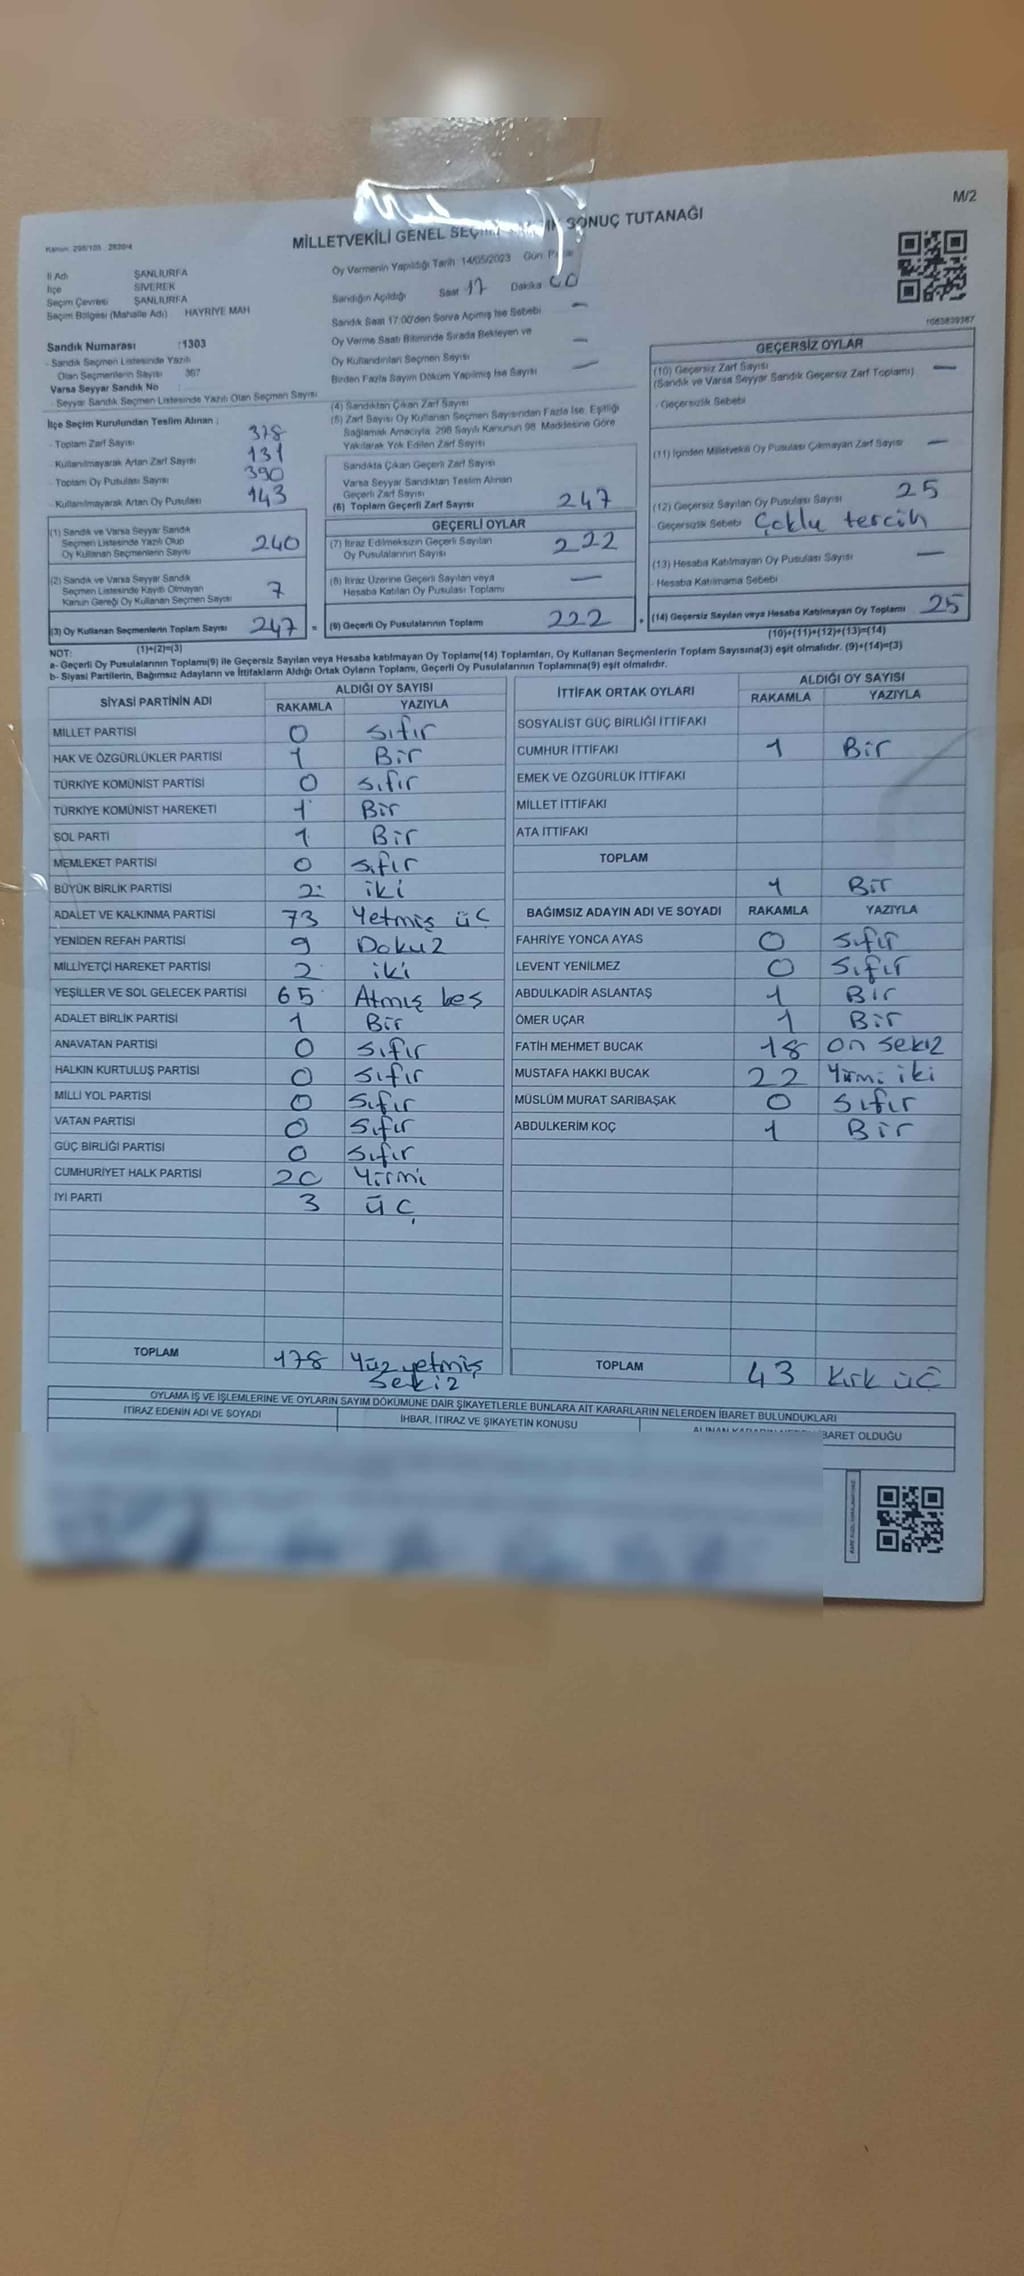 M/2
MİLLETVEKİLİ GENEL SEÇİ SONUÇ TUTANAĞI
İl Adı ŞANLIURFA
İlçe SİVEREK
Seçim Çevresi ŞANLIURFA
Seçim Bölgesi (Mahalle Adı) HAYRİYE MAH
Sandık Numarası :1303
- Sandık Seçmen Listesinde Yazılı
Olan Seçmenlerin Sayısı 367
Varsa Seyyar Sandık No
- Seyyar Sandık Seçmen Listesinde Yazılı Olan Seçmen Sayısı
Oy Vermenin Yapıldığı Tarih 14/05/2023 Gün
Sandığın Açıldığı Saat 17 Dakika 00
Sandık Saat 17:00'den Sonra Açılmış İse Sebebi —
Oy Verme Saati Bitiminde Sırada Bekleyen ve
Oy Kullandırılan Seçmen Sayısı —
Birden Fazla Sayım Döküm Yapılmış İse Sayısı —
İlçe Seçim Kurulundan Teslim Alınan :
- Toplam Zarf Sayısı 378
- Kullanılmayarak Artan Zarf Sayısı 131
- Toplam Oy Pusulası Sayısı 390
- Kullanılmayarak Artan Oy Pusulası 143
(1) Sandık ve Varsa Seyyar Sandık
Seçmen Listesinde Yazılı Olup
Oy Kullanan Seçmenlerin Sayısı 240
(2) Sandık ve Varsa Seyyar Sandık
Seçmen Listesinde Kayıtlı Olmayan
Kanun Gereği Oy Kullanan Seçmen Sayısı 7
(3) Oy Kullanan Seçmenlerin Toplam Sayısı 247 =
(1)+(2)=(3)
(4) Sandıktan Çıkan Zarf Sayısı
(5) Zarf Sayısı Oy Kullanan Seçmen Sayısından Fazla İse, Eşitliği
Sağlamak Amacıyla, 298 Sayılı Kanunun 98. Maddesine Göre
Yakılarak Yok Edilen Zarf Sayısı
Sandıkta Çıkan Geçerli Zarf Sayısı
Varsa Seyyar Sandıktan Teslim Alınan
Geçerli Zarf Sayısı
(6) Toplam Geçerli Zarf Sayısı 247
GEÇERLİ OYLAR
(7) İtiraz Edilmeksizin Geçerli Sayılan
Oy Pusulalarının Sayısı 222
(8) İtiraz Üzerine Geçerli Sayılan veya
Hesaba Katılan Oy Pusulası Toplamı —
(9) Geçerli Oy Pusulalarının Toplamı 222 +
GEÇERSİZ OYLAR
(10) Geçersiz Zarf Sayısı —
(Sandık ve Varsa Seyyar Sandık Geçersiz Zarf Toplamı)
- Geçersizlik Sebebi
(11) İçinden Milletvekili Oy Pusulası Çıkmayan Zarf Sayısı —
(12) Geçersiz Sayılan Oy Pusulası Sayısı 25
- Geçersizlik Sebebi Çoklu tercih
(13) Hesaba Katılmayan Oy Pusulası Sayısı —
- Hesaba Katılmama Sebebi
(14) Geçersiz Sayılan veya Hesaba Katılmayan Oy Toplamı 25
(10)+(11)+(12)+(13)=(14)
NOT:
a- Geçerli Oy Pusulalarının Toplamı(9) ile Geçersiz Sayılan veya Hesaba katılmayan Oy Toplamı(14) Toplamları, Oy Kullanan Seçmenlerin Toplam Sayısına(3) eşit olmalıdır. (9)+(14)=(3)
b- Siyasi Partilerin, Bağımsız Adayların ve İttifakların Aldığı Ortak Oyların Toplamı, Geçerli Oy Pusulalarının Toplamına(9) eşit olmalıdır.
SİYASİ PARTİNİN ADI ALDIĞI OY SAYISI
RAKAMLA YAZIYLA
MİLLET PARTİSİ 0 Sıfır
HAK VE ÖZGÜRLÜKLER PARTİSİ 1 Bir
TÜRKİYE KOMÜNİST PARTİSİ 0 Sıfır
TÜRKİYE KOMÜNİST HAREKETİ 1 Bir
SOL PARTİ 1 Bir
MEMLEKET PARTİSİ 0 Sıfır
BÜYÜK BİRLİK PARTİSİ 2 iki
ADALET VE KALKINMA PARTİSİ 73 Yetmiş üç
YENİDEN REFAH PARTİSİ 9 Dokuz
MİLLİYETÇİ HAREKET PARTİSİ 2 iki
YEŞİLLER VE SOL GELECEK PARTİSİ 65 Atmış beş
ADALET BİRLİK PARTİSİ 1 Bir
ANAVATAN PARTİSİ 0 Sıfır
HALKIN KURTULUŞ PARTİSİ 0 Sıfır
MİLLİ YOL PARTİSİ 0 Sıfır
VATAN PARTİSİ 0 Sıfır
GÜÇ BİRLİĞİ PARTİSİ 0 Sıfır
CUMHURİYET HALK PARTİSİ 20 Yirmi
İYİ PARTİ 3 üç
TOPLAM 178 Yüz yetmiş
Sekiz
İTTİFAK ORTAK OYLARI ALDIĞI OY SAYISI
RAKAMLA YAZIYLA
SOSYALİST GÜÇ BİRLİĞİ İTTİFAKI
CUMHUR İTTİFAKI 1 Bir
EMEK VE ÖZGÜRLÜK İTTİFAKI
MİLLET İTTİFAKI
ATA İTTİFAKI
TOPLAM 1 Bir
BAĞIMSIZ ADAYIN ADI VE SOYADI RAKAMLA YAZIYLA
FAHRİYE YONCA AYAS 0 Sıfır
LEVENT YENİLMEZ 0 Sıfır
ABDULKADİR ASLANTAŞ 1 Bir
ÖMER UÇAR 1 Bir
FATİH MEHMET BUCAK 18 On sekiz
MUSTAFA HAKKI BUCAK 22 Yirmi iki
MÜSLÜM MURAT SARIBAŞAK 0 Sıfır
ABDULKERİM KOÇ 1 Bir
TOPLAM 43 Kırk üç
OYLAMA İŞ VE İŞLEMLERİNE VE OYLARIN SAYIM DÖKÜMÜNE DAİR ŞİKAYETLERLE BUNLARA AİT KARARLARIN NELERDEN İBARET BULUNDUKLARI
İTİRAZ EDENİN ADI VE SOYADI İHBAR, İTİRAZ VE ŞİKAYETİN KONUSU
BARET OLDUĞU